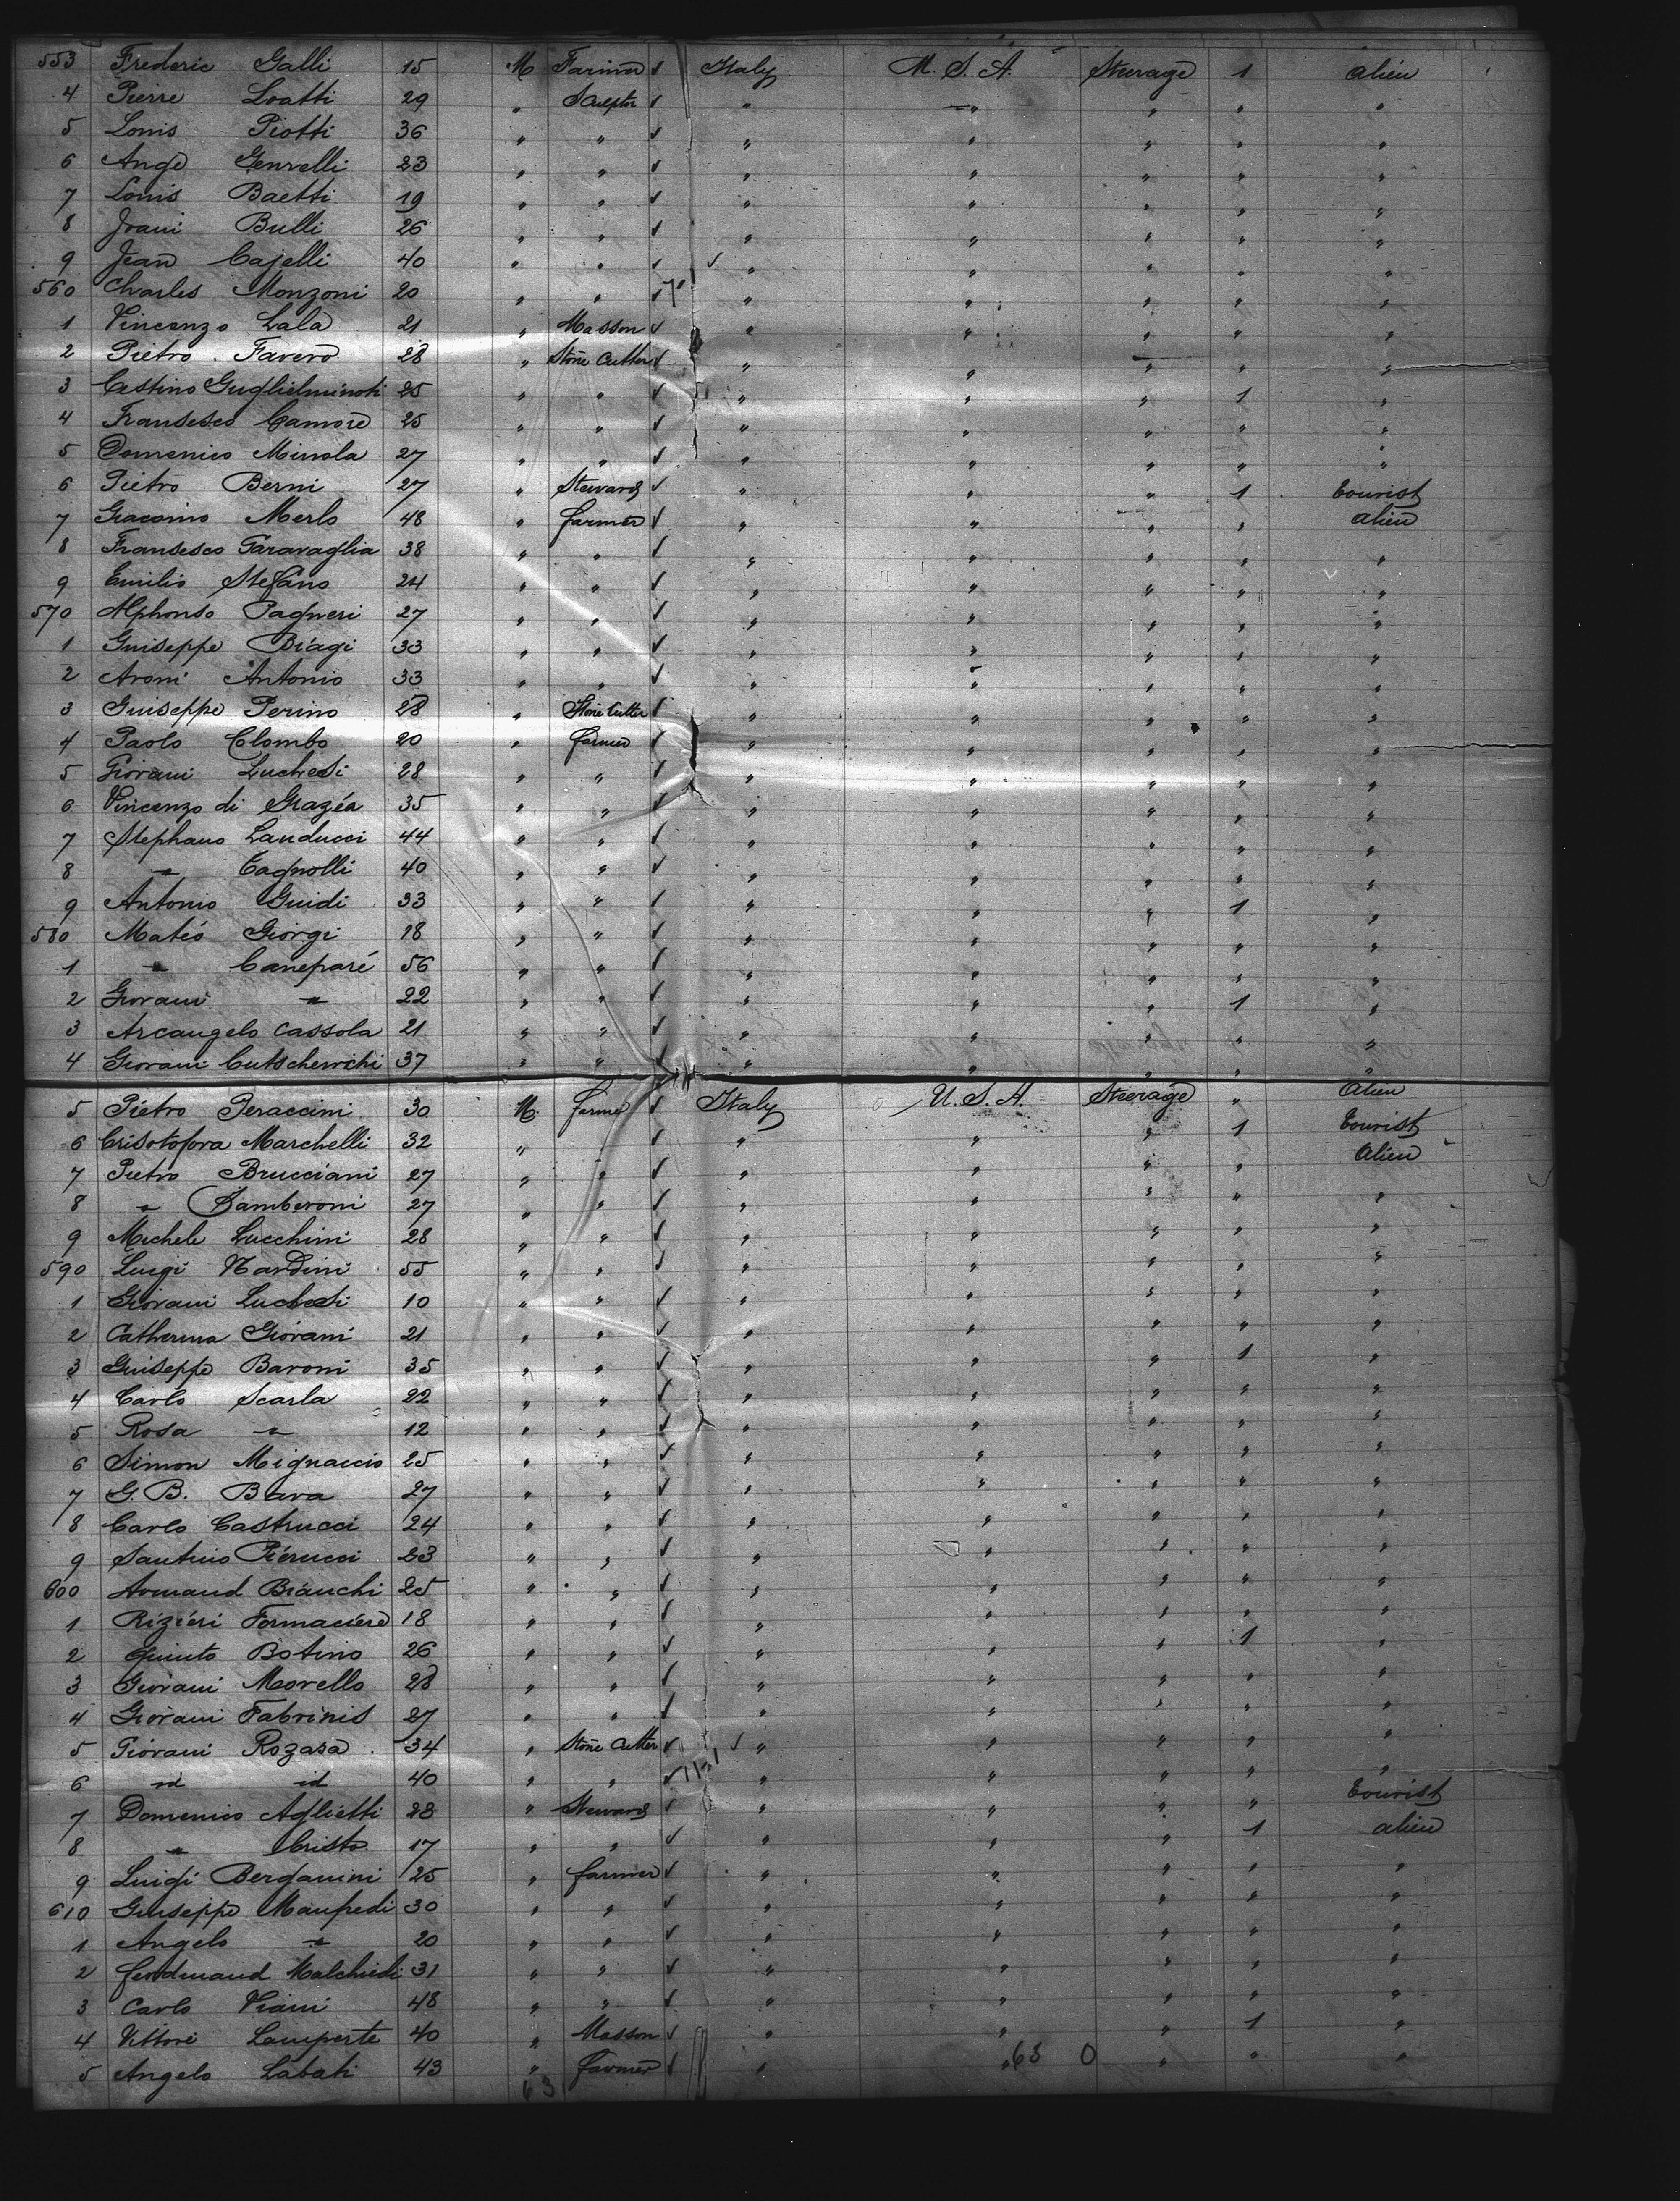 553 Frederic Galli 15 M Farmer ✓ Italy U. S. A. Steerage 1 alien
4 Pierre Loatti 29 " Sculptor ✓ " " " " "
5 Louis Piotti 36 " " ✓ " " " " "
6 Ange Genrelli 23 " " ✓ " " " " "
7 Louis Baetti 19 " " ✓ " " " " "
8 Jvani Bulli 26 " " ✓ " " " " "
9 Jean Cajelli 40 " " ✓ ✓ " " " " "
560 Charles Monzoni 20 " " ✓ " " " " "
1 Vincenzo Lala 21 " Masson ✓ " " " " "
2 Pietro Favero 28 " Stone Cutter ✓ " " " " "
3 Cestino Guglielminoti 25 " " ✓ " " " 1 "
4 Fransesco Camore 25 " " ✓ " " " " "
5 Domenico Minola 27 " " ✓ " " " " "
6 Pietro Berni 27 " Steward ✓ " " " 1 tourist
7 Giacomo Merlo 48 " farmer ✓ " " " " alien
8 Fransesco Garavaglia 38 " " ✓ " " " " "
9 Emilio Stefano 24 " " ✓ " " " " "
570 Alphonso Pagneri 27 " " ✓ " " " " "
1 Guiseppe Biagi 33 " " ✓ " " " " "
2 Aroni Antonio 33 " " ✓ " " " " "
3 Guiseppe Perino 28 " Stone Cutter ✓ " " " " "
4 Paolo Colombo 20 " farmer ✓ " " " " "
5 Giovani Luchesi 28 " " ✓ " " " " "
6 Vincenzo di Grazéa 35 " " ✓ " " " " "
7 Stephano Landucci 44 " " ✓ " " " " "
8 " Cagnolli 40 " " ✓ " " " " "
9 Antonio Guidi 33 " " ✓ " " " 1 "
580 Matéo Giorgi 18 " " ✓ " " " " "
1 " Caneparé 56 " " ✓ " " " " "
2 Giovani " 22 " " ✓ " " " 1 "
3 Arcangelo Cassola 21 " " ✓ " " " " "
4 Giovani Cutschewichi 37 " " ✓ " " " " "
5 Pietro Peraccini 30 M. farmer ✓ Italy U. S. A. Steerage " Alien
6 Crisotofora Marchelli 32 " ✓ " " " 1 tourist
7 Pietro Brucciani 27 " " ✓ " " " " alien
8 " Bamberoni 27 " " ✓ " " " " "
9 Michele Lucchini 28 " " ✓ " " " " "
590 Luigi Nardini 55 " " ✓ " " " " "
1 Giovani Luchesi 10 " " ✓ " " " " "
2 Catherina Giovani 21 " " ✓ " " " " "
3 Guiseppe Baroni 35 " " ✓ " " " 1 "
4 Carlo Scarla 22 " " ✓ " " " " "
5 Rosa " 12 " " ✓ " " " " "
6 Simon Mignaccio 25 " " ✓ " " " " "
7 G. B. Bava 27 " " ✓ " " " " "
8 Carlo Castrucci 24 " " ✓ " " " " "
9 Santino Pierucci 23 " " ✓ " " " " "
600 Armand Bianchi 25 " " ✓ " " " " "
1 Riziéri Formaciére 18 " " ✓ " " " " "
2 Quinto Botino 26 " " ✓ " " " 1 "
3 Giovani Morello 28 " " ✓ " " " " "
4 Giovani Fabrinis 27 " " ✓ " " " " "
5 Giovani Rozasa 34 " Stone Cutter ✓ ✓ " " " " "
6 id id 40 " " ✓ " " " " "
7 Domenico Aglietti 28 " Steward ✓ " " " " tourist
8 " Cristo 17 " " ✓ " " " 1 alien
9 Luigi Berganini 25 " farmer ✓ " " " " "
610 Guiseppe Manfredi 30 " " ✓ " " " " "
1 Angelo " 20 " " ✓ " " " " "
2 ferdinand Malchiedi 31 " " ✓ " " " " "
3 Carlo Viani 48 " " ✓ " " " " "
4 Vittore Lamperte 40 " Masson ✓ " " " 1 "
5 Angelo Labati 43 " farmer ✓ " " " " "
63 63 0